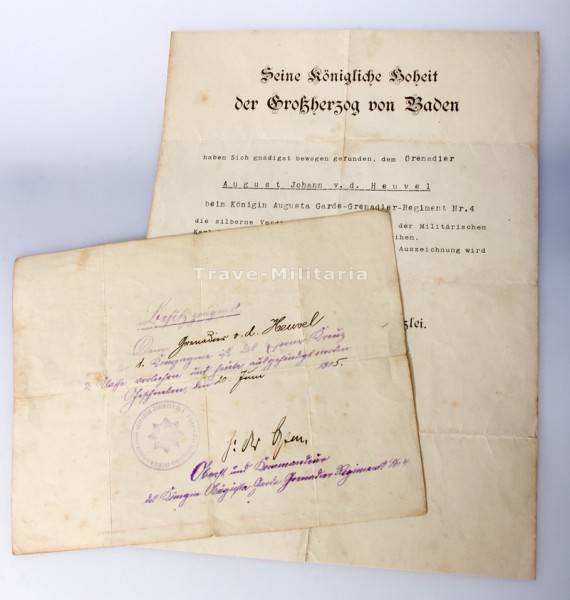 Seine Königliche Hoheit
der Großherzog von Baden
haben Sich gnädigst bewogen gefunden, dem Grenadier
August Johann v.d. Heuvel
beim Königin Augusta Garde-Grenadier-Regiment Nr.4
die silberne der Militärischen
ihen.
Auszeichnung wird
zlei.
Trave-Militaria
Besitzzeugnis
Dem Grenadier v. d. Heuvel
1. Kompagnie ist das Kreuz
2. Klasse verliehen und heute ausgehändigt worden
den 20. Juni 1915
Oberst und Kommandeur
des Königin Augusta Garde Grenadier Regiments No 4